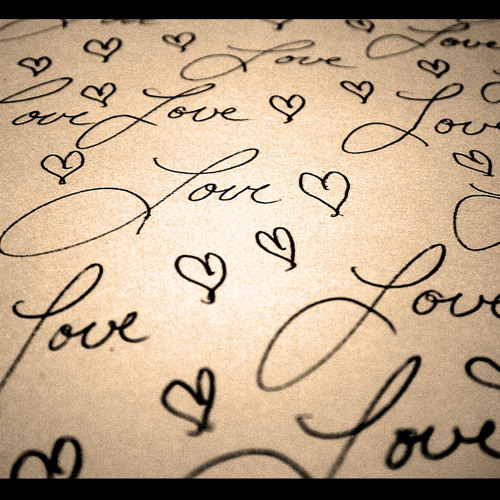 Love
Love
Love Love Love
Love
Love Love
Love